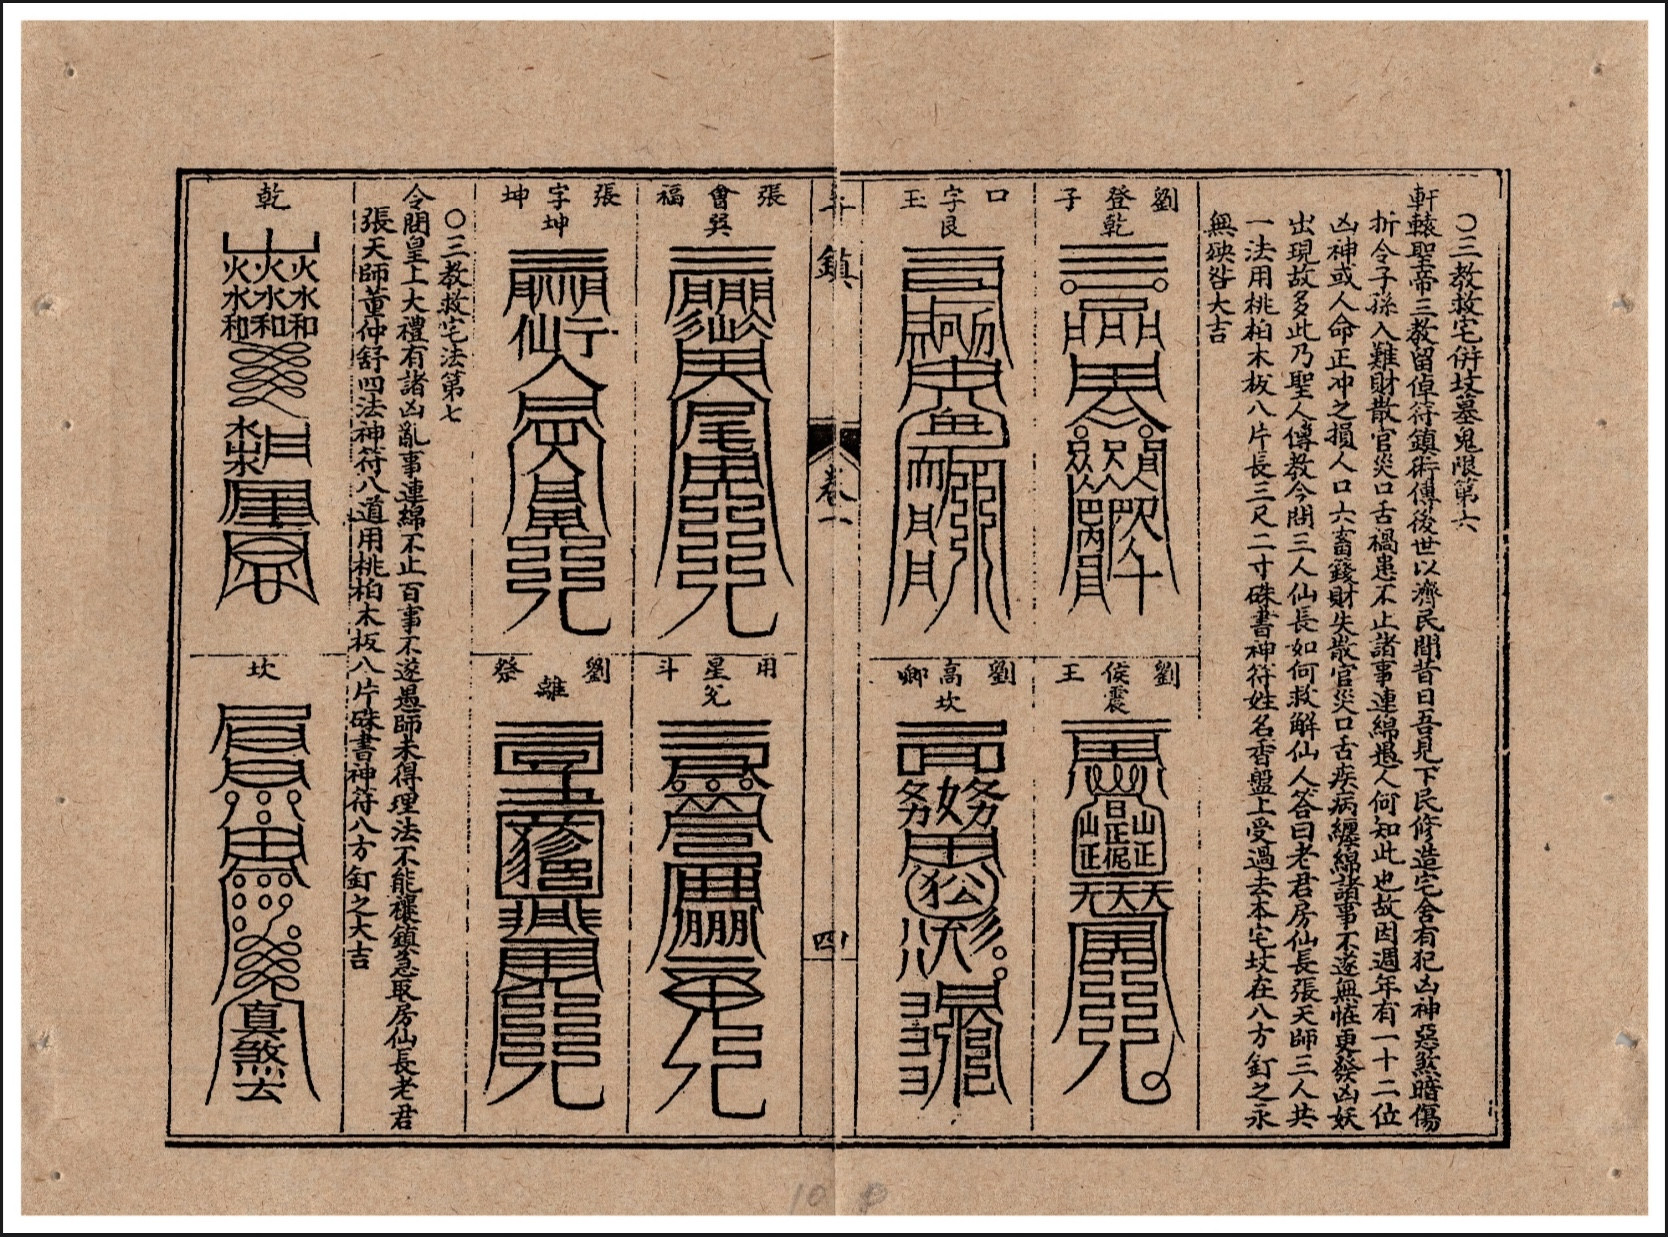 ○三教救宅併坟墓鬼限第六
軒轅聖帝三教留倬符鎮術傳後世以濟民間昔日吾見下民修造宅舍有犯凶神惡煞暗傷
折令子孫入難財散官災口舌禍患不止諸事連綿愚人何知此也故因週年有一十二位
凶神或人命正冲之損人口六畜錢財失散官災口舌疾病纏綿諸事不遂無怪更發凶妖
出現故多此乃聖人傳教今問三人仙長如何救解仙人答曰老君房仙長張天師三人共
一法用桃柏木板八片長三尺二寸硃書神符姓名香盤上受過去本宅坟在八方釘之永
無殃咎大吉
劉登子
乾
劉侯王
震
口字玉
艮
劉高卿
坎
鎮
卷一
四
張會福
巽
用星斗
兌
張字坤
坤
劉祭
離
○三教救宅法第七
今閉皇上大禮有諸凶亂事連綿不止百事不遂愚師未得理法不能禳鎮急取房仙長老君
張天師董仲舒四法神符八道用桃柏木板八片硃書神符八方釘之大吉
乾
火火火
水水水
和和和
坎
真煞去
10